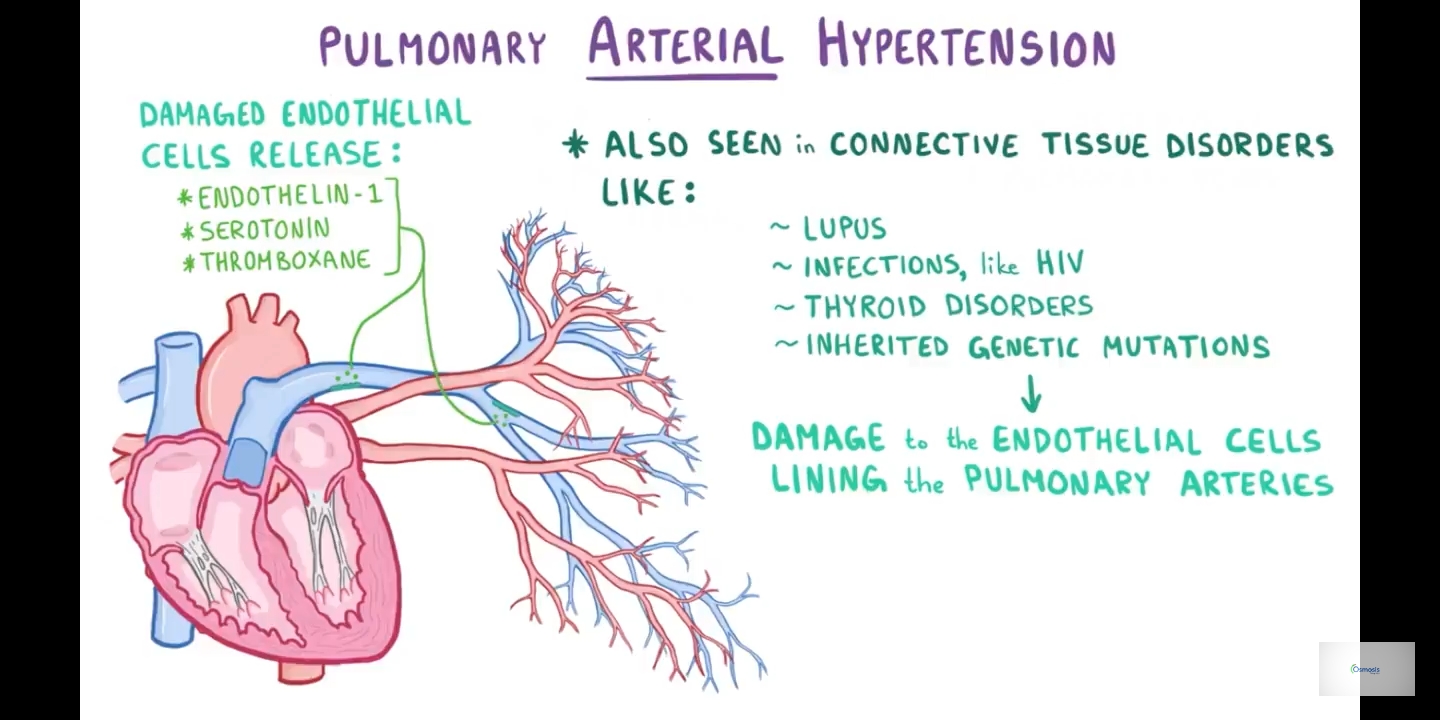 PULMONARY ARTERIAL HYPERTENSION
DAMAGED ENDOTHELIAL
CELLS RELEASE:
* ENDOTHELIN-1
* SEROTONIN
* THROMBOXANE
* ALSO SEEN in CONNECTIVE TISSUE DISORDERS
LIKE:
~ LUPUS
~ INFECTIONS, like HIV
~ THYROID DISORDERS
~ INHERITED GENETIC MUTATIONS
↓
DAMAGE to the ENDOTHELIAL CELLS
LINING the PULMONARY ARTERIES
Osmosis